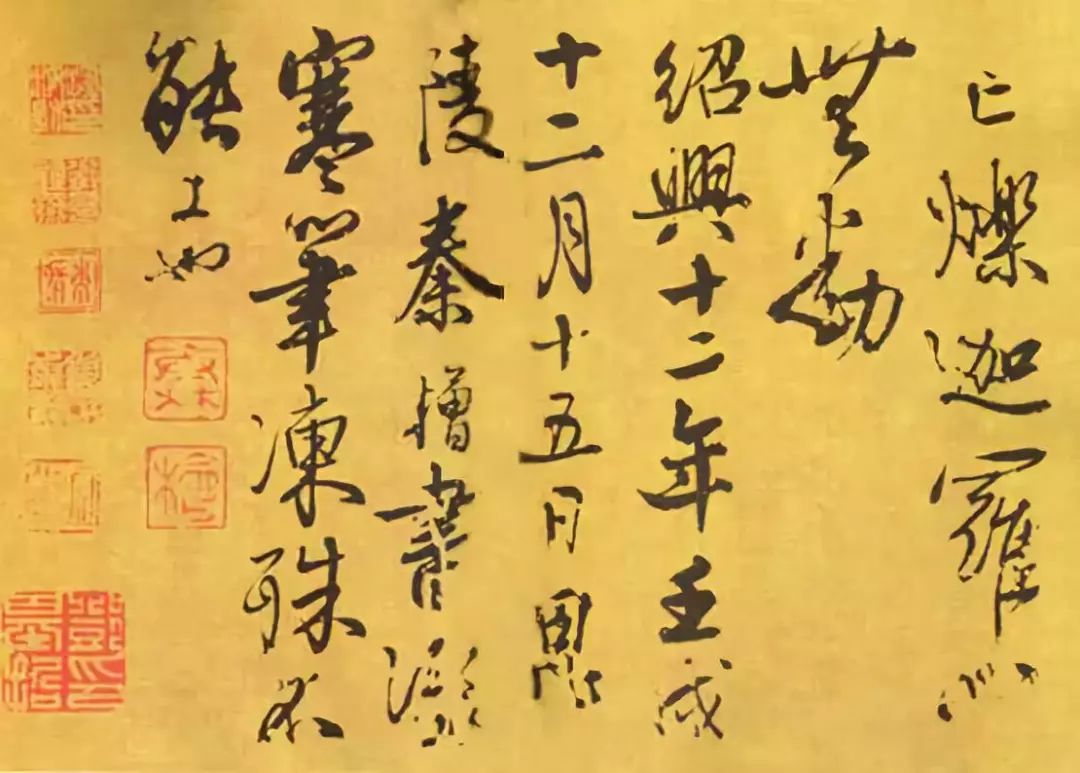 亡爍迦羅心
無動
紹興十二年壬戌
十二月十五日
陵秦檜書凝
寒筆凍殊不
能工也